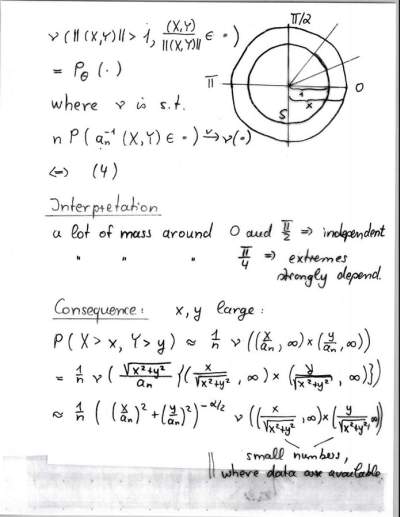 ν(||(X,Y)|| > 1, (X,Y)/||(X,Y)|| ∈ •)
= P_Θ(•)
where ν is s.t.
n P(a_n^{-1}(X,Y) ∈ •) →^v ν(•)
<=> (4)
π/2
π
0
1
x
S
Interpretation
a lot of mass around 0 and π/2 => independent
" " " π/4 => extremes
strongly depend.
Consequence: x, y large:
P(X > x, Y > y) ≈ 1/n ν((x/a_n, ∞) × (y/a_n, ∞))
= 1/n ν(√(x²+y²)/a_n {(x/√(x²+y²), ∞) × (y/√(x²+y²), ∞)})
≈ 1/n ((x/a_n)² + (y/a_n)²)^{-α/2} ν((x/√(x²+y²), ∞) × (y/√(x²+y²), ∞))
small numbers,
where data are available.